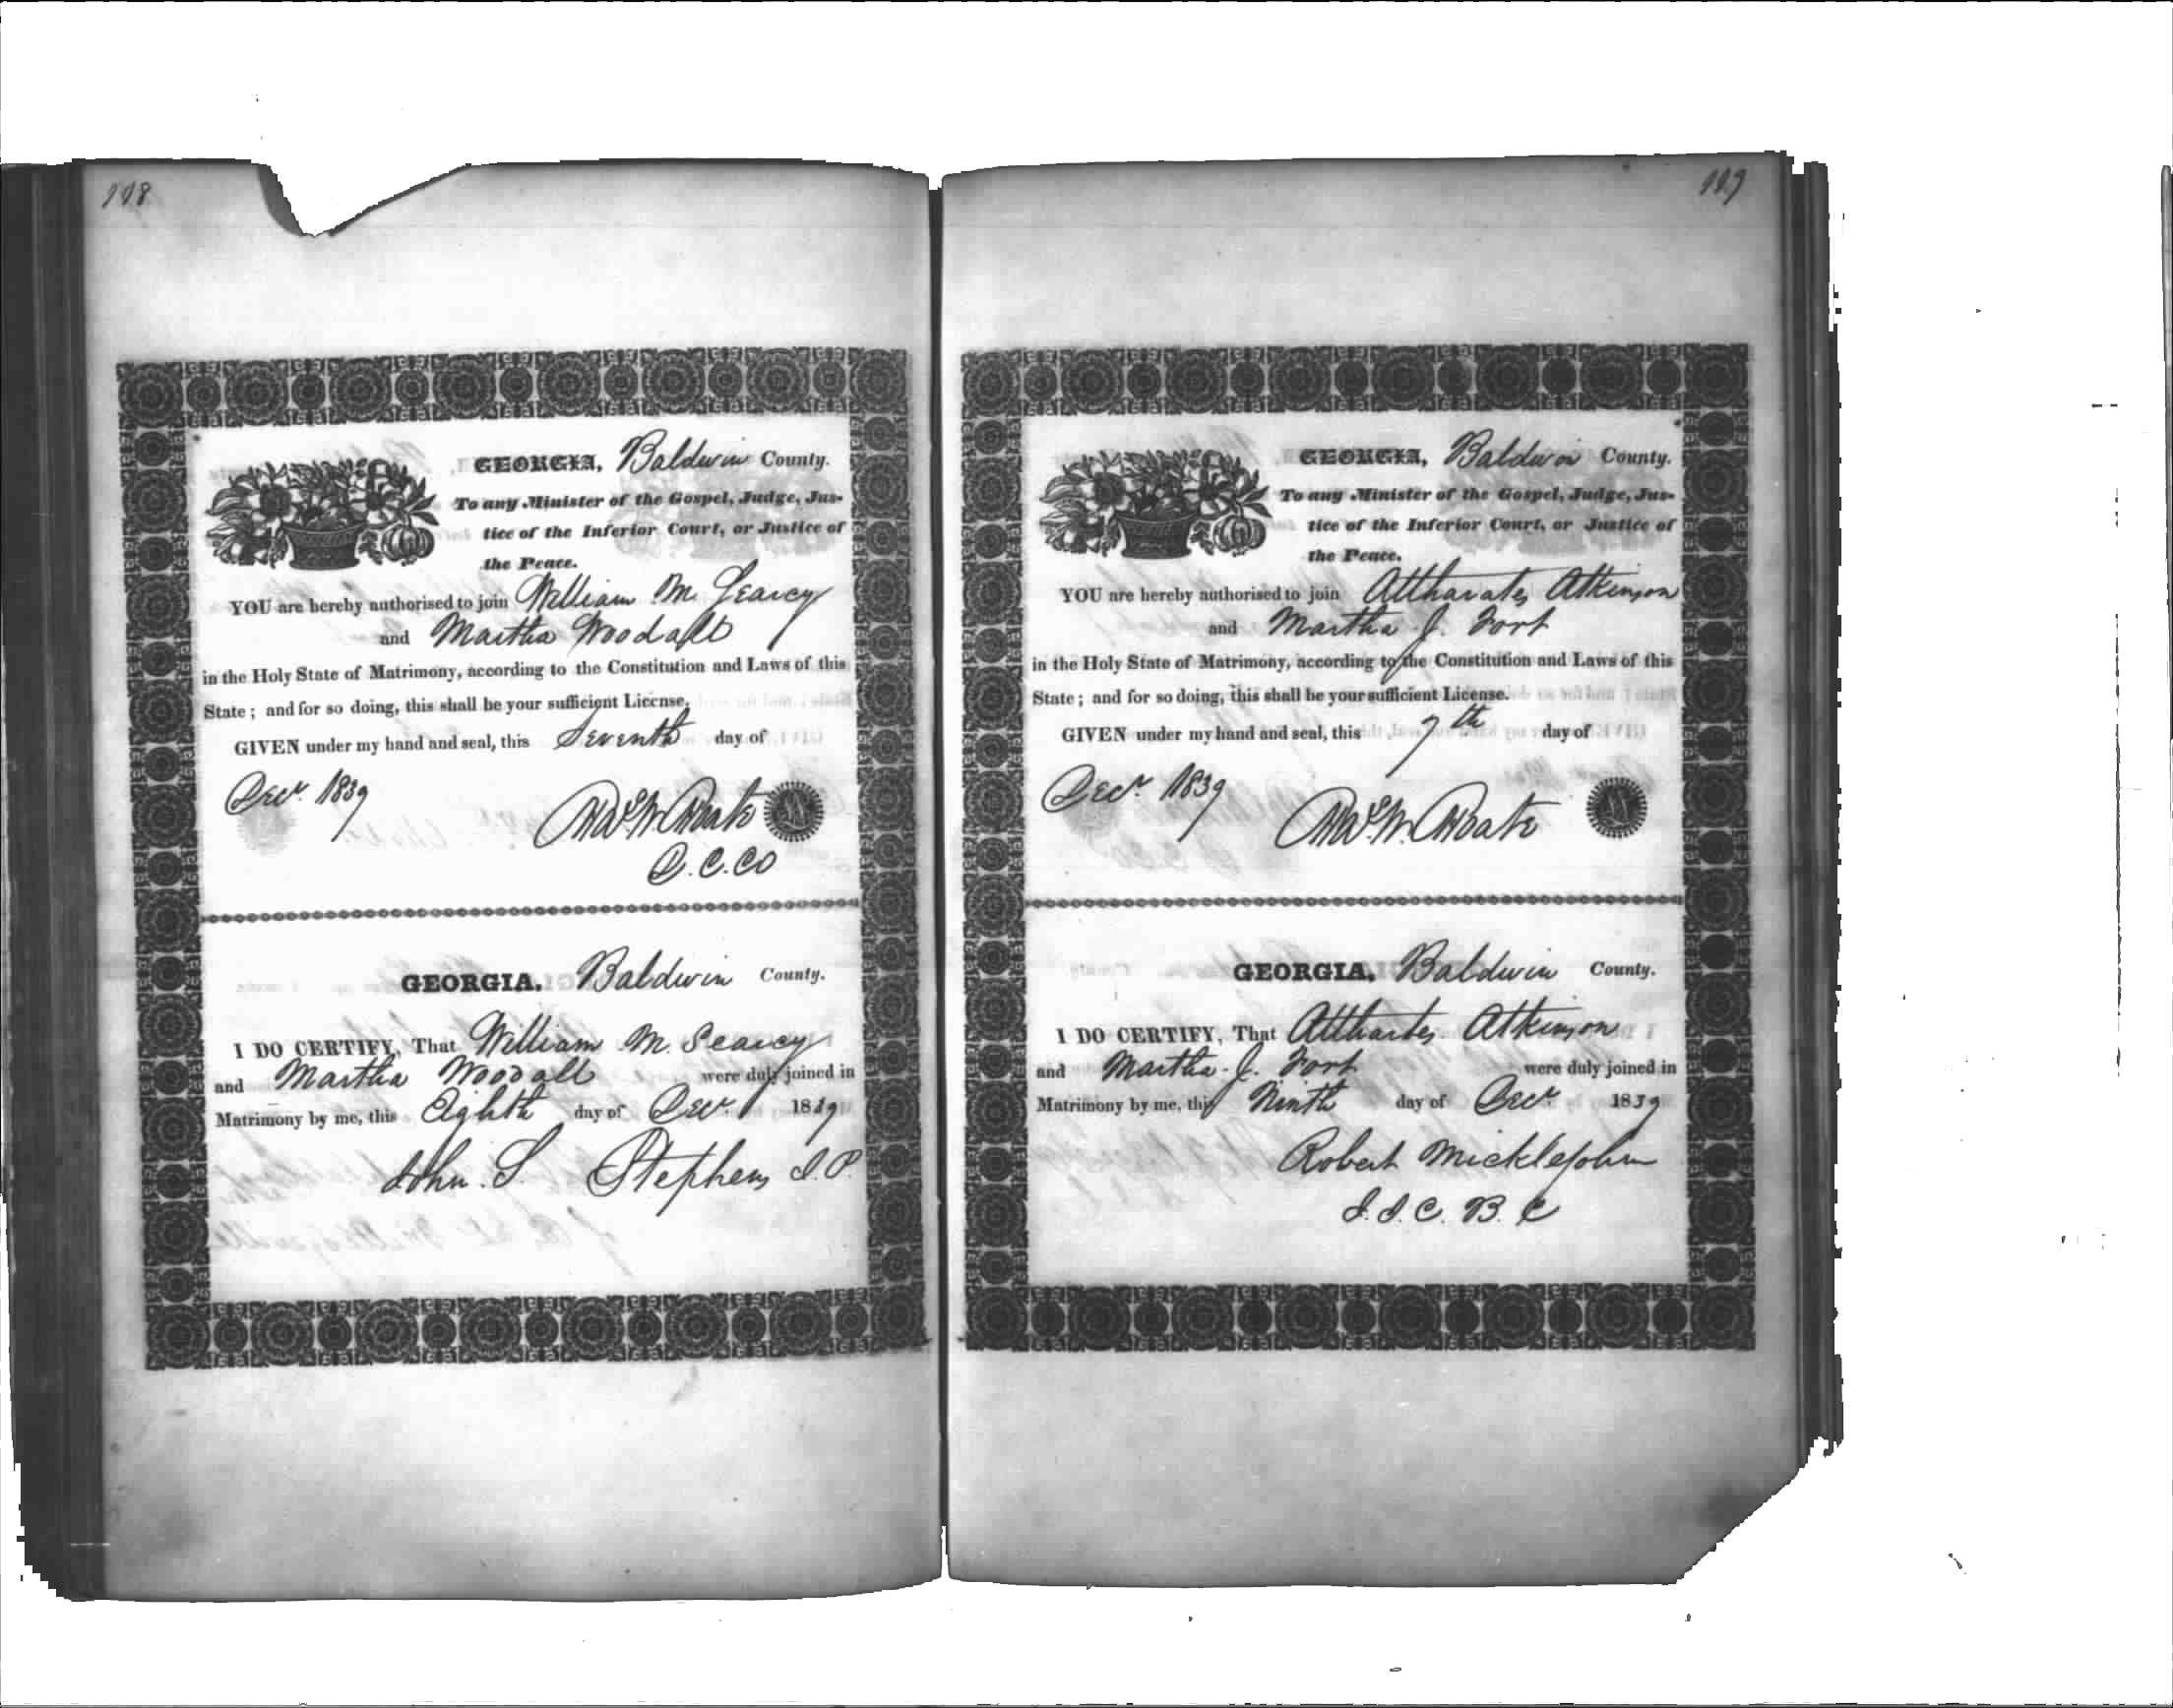 118
GEORGIA, Baldwin County.
To any Minister of the Gospel, Judge, Jus-
tice of the Inferior Court, or Justice of
the Peace.
YOU are hereby authorised to join William M. Searcy
and Martha Woodall
in the Holy State of Matrimony, according to the Constitution and Laws of this
State; and for so doing, this shall be your sufficient License.
GIVEN under my hand and seal, this Seventh day of
Decr. 1839
C. C. CO
GEORGIA. Baldwin County.
I DO CERTIFY, That William M. Searcy
and Martha Woodall were duly joined in
Matrimony by me, this Eighth day of Decr. 1839
John. S. Stephens J. P.
119
GEORGIA, Baldwin County.
To any Minister of the Gospel, Judge, Jus-
tice of the Inferior Court, or Justice of
the Peace.
YOU are hereby authorised to join Atkinson
and Martha J. Fort
in the Holy State of Matrimony, according to the Constitution and Laws of this
State; and for so doing, this shall be your sufficient License.
GIVEN under my hand and seal, this 7th day of
Decr. 1839
GEORGIA, Baldwin County.
I DO CERTIFY, That Atkinson
and Martha. J. Fort were duly joined in
Matrimony by me, this Ninth day of Decr 1839
Robert Micklejohn
J. I. C. B. C